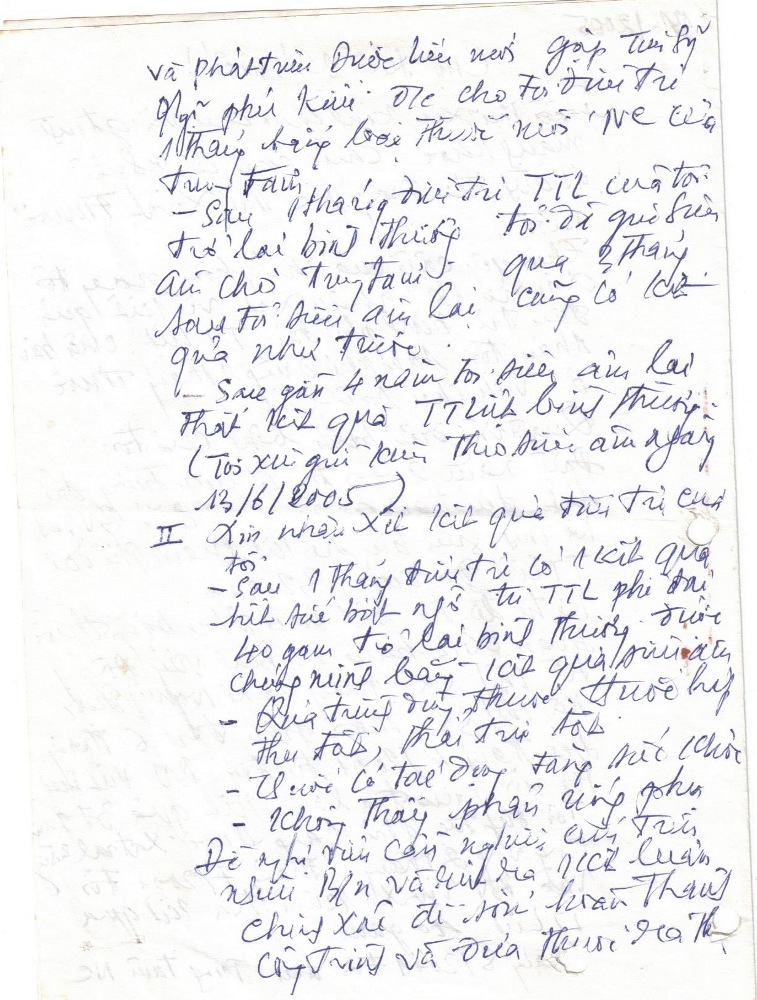 và phát triển Dược liệu mới gặp Tiến sỹ
phú Kiều. Đ/c cho tôi điều trị
1 tháng bằng loại thuốc mới NC của
trung tâm
- Sau 1 tháng điều trị TTL của tôi
trở lại bình thường tôi đã gửi siêu
âm cho trung tâm. qua 3 tháng
sau tôi siêu âm lại cũng có kết
quả như trước.
- Sau gần 4 năm tôi siêu âm lại
thất kết quả TTL bình thường
(Tôi xin gửi kèm theo siêu âm ngày
13/6/2005)
II Xin nhận xét kết quả điều trị của
tôi
- Sau 1 tháng điều trị có 1 kết quả
hết sức bất ngờ từ TTL phì đại
40 gam trở lại bình thường được
chứng minh bằng kết quả siêu âm
- Quá trình dùng thuốc, thuốc hấp
thu tốt, thải trừ tốt.
- Thuốc có tác dụng tăng sức khỏe
- Không thấy phản ứng phụ
Đề nghị viện cần nghiên cứu trên
người B/n và rút ra kết luận
chính xác để sớm hoàn thành
công trình và đưa thuốc ra